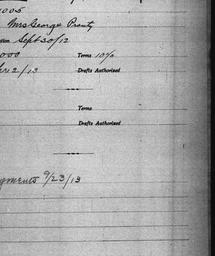 1005
Mrs George Prouty
Sept 30/12
000 Terms 10%
12/13 Drafts Authorized
Terms
Drafts Authorized
9/23/13